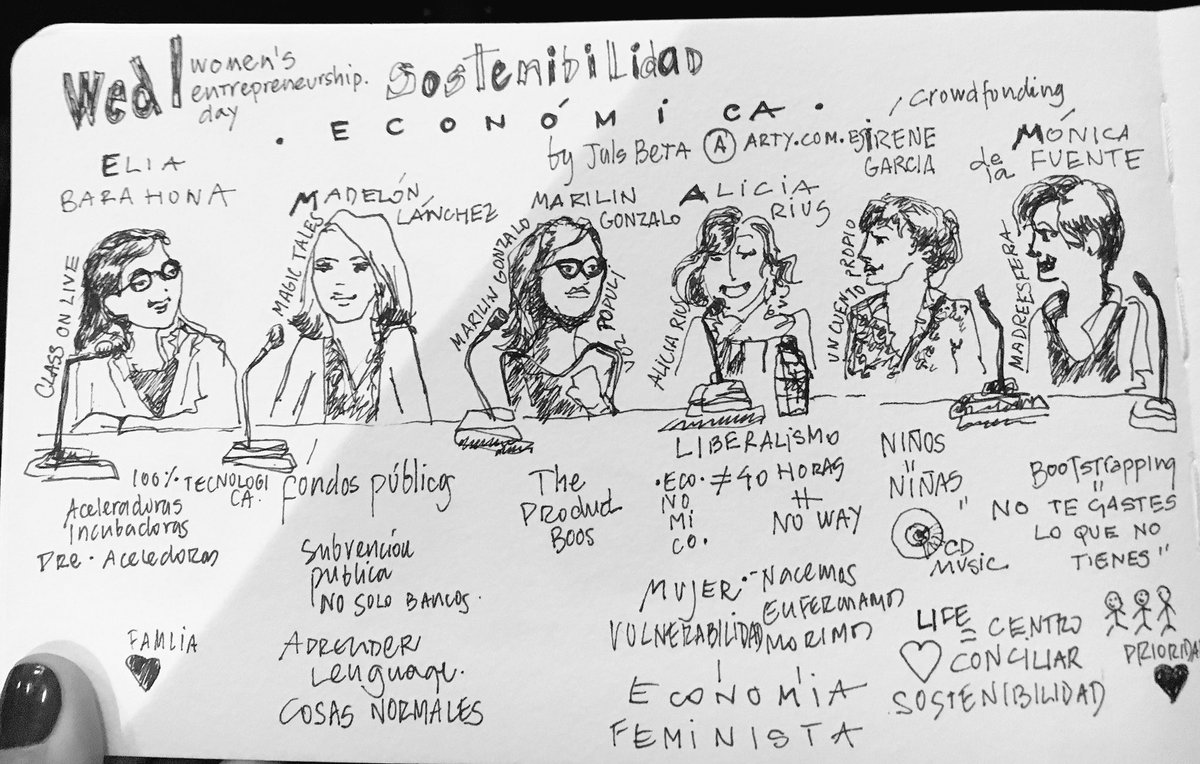 Wed
women's
entrepreneurship.
day
SOSTENIBILIDAD
. ECONÓMICA .
by JULS BETA Ⓐ ARTY.COM.ES
ELIA
BARAHONA
CLASS ON LIVE
100% TECNOLOGI
CA.
Aceleradoras
Incubadoras
Pre-Aceledoras
FAMLIA
MADELÓN
LÁNCHEZ
MAGIC TALES
fondos públicos
Subvención
pública
NO SOLO BANCOS.
APRENDER
Lenguage.
COSAS NORMALES
MARILIN
GONZALO
MARILIN GONZALO
VOZ POPULI
The
PRODUCT
BOOS
ALICIA
RIUS
ALICIA RIUS
LIBERALISMO
.ECO.
NO
MI
CO.
≠40 HORAS
NO WAY
MUJER.-
VULNERABILIDAD
Nacemos
ENFERMAMOS
MORIMOS
ECONOMIA
FEMINISTA
crowdfonding
IRENE
GARCIA
UN CUENTO PROPIO
NIÑOS
=
NIÑAS
"
CD
MUSIC
LIFE
= CENTRO
CONCILIAR
SOSTENIBILIDAD
MÓNICA
de la FUENTE
MADREESFERA
BOOTSTRAPPING
=
"NO TE GASTES
LO QUE NO
TIENES"
PRIORIDAD